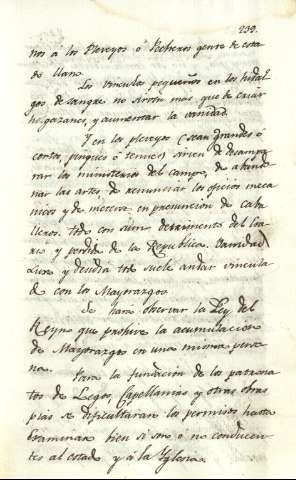 239.
nos a los Pleveyos ó Pecheros gente de esta
do llano.
Los vinculos pequeños en los hidal
gos de sangre no sirven mas que de criar
holgazanes, y aumentar la vanidad.
Y en los pleveyos (sean grandes ó
cortos, pingues ó tenues) sirven de desampa
rar los ministerios del campo, de abando
nar las artes de renunciar los oficios meca
nicos y de meterse en presuncion de Caba
lleros. todo con sumo detrimento del Era
rio y perdida de la Republica. Vanidad
Luxo y deudas todo suele andar vincula
do con los Mayorazgos.
Se hará observar la Ley del
Reyno que prohive la acumulacion
de Mayorazgos en una misma perso
na.
Para la fundacion de los patrona
tos de Legos, Capellanias y otras obras
pias se dificultaran los permisos hasta
examinar bien si son ó no conducen
tes al estado y á la Yglesia.